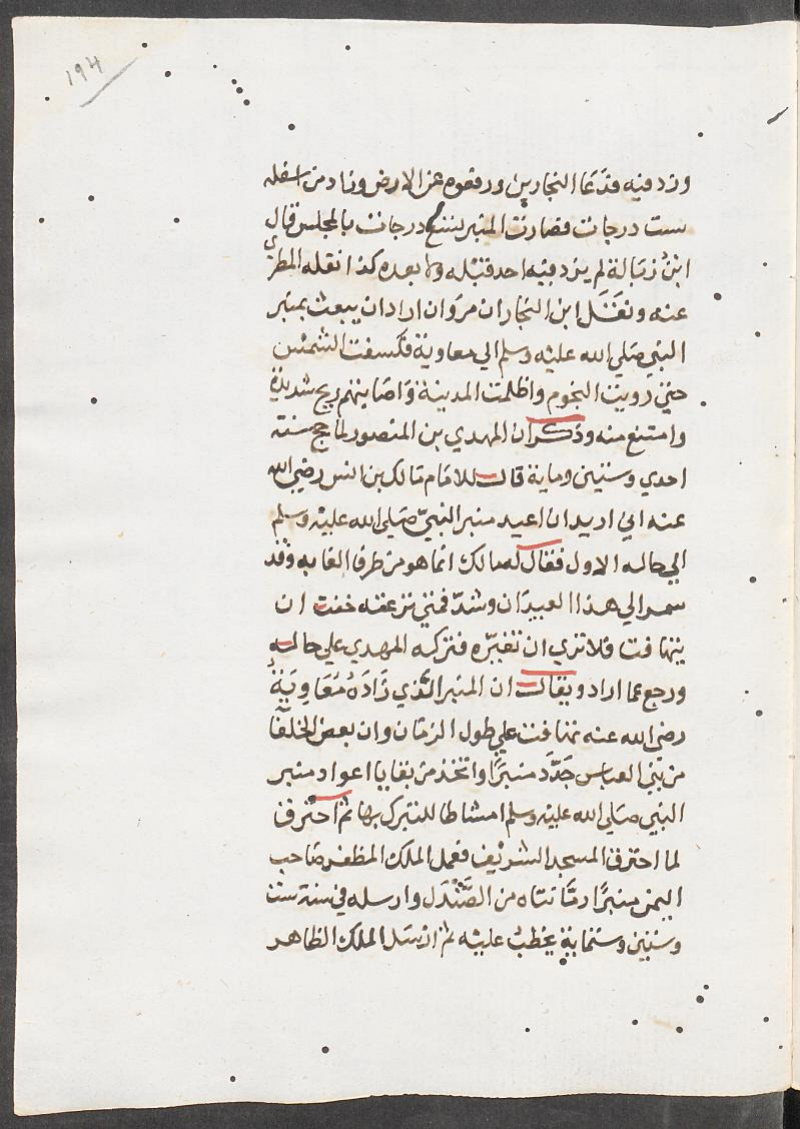 ١٩٤
وزد فيه فدعا النجارين ورفعوه عن الارض وزاد من اسفله
ست درجات فصارت المنبر بتسع درجات بالمجلس قال
ابن زبالة لم يزد فيه احد قبله ولا بعده كذا نقله المطري
عنه ونقل ابن النجار ان مروان اراد ان يبعث بمنبر
النبي صلي الله عليه وسلم الي معاوية فكسفت الشمس
حتي رويت النجوم واظلمت المدينة واصابتهم ريح شديدة
وامتنع منه وذكر ان المهدي بن المنصور لما حج سنة
احدي وستين وماية قال للامام مالك بن انس رضي الله
عنه اني اريد ان اعيد منبر النبي صلي الله عليه وسلم
الي حاله الاول فقال له مالك انما هو من طرفا الغابه وقد
سمر الي هذا العبيدان وشد فمتي نزعته خفت ان
يتهافت فلا تري ان تغيره فتركه المهدي علي حاله
ورجع عما اراد ويقال ان المنبر الذي زاده معاوية
رضي الله عنه تهافت علي طول الزمان وان بعض الخلفا
من بني العباس جدد منبرا واتخذ من بقايا اعواد منبر
النبي صلي الله عليه وسلم امشاطا للتبرك بها ثم احترق
لما احترق المسجد الشريف فعمل الملك المظفر صاحب
اليمن منبرا رمانتاه من الصندل وارسله في سنة ست
وستين وستماية يخطب عليه ثم ارسل الملك الظاهر